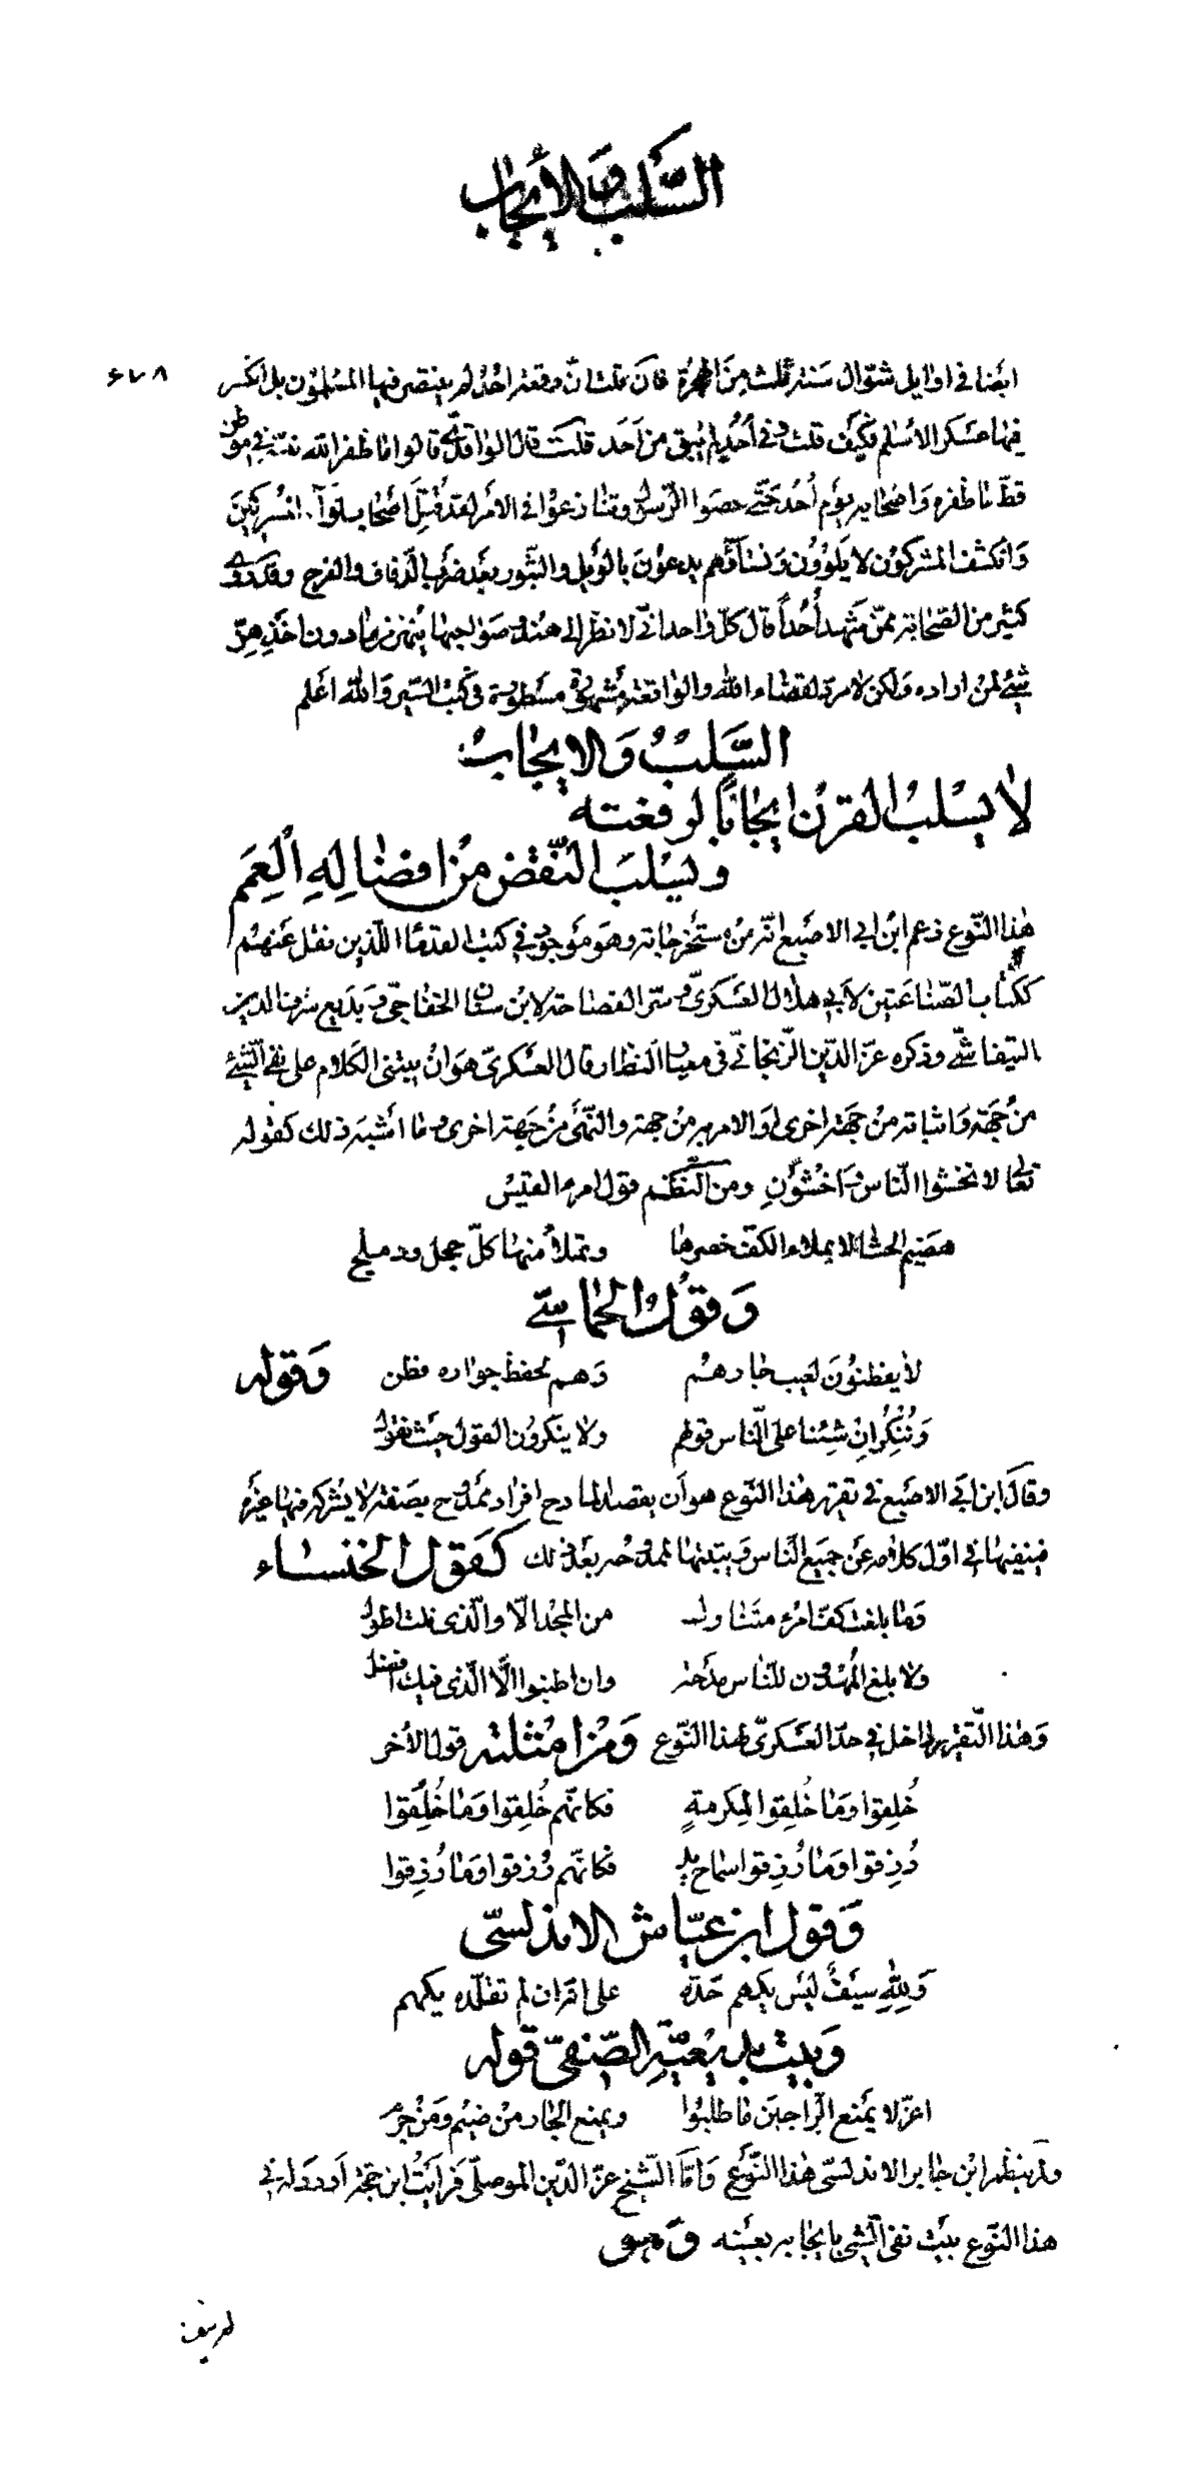 السلب والإيجاب
٦٧٨
ايضا في اوايل شوّال سنة ثلث من الهجرة فان قلت انّ وقعة احد لم ينتصر فيها المسلمون بل انكسر
فيها عسكر الاسلام فكيف قلت وفي أُحُد لم يبق من أحد قلت قال الواقديّ قالوا ما ظفر الله نبيّه في موطن
قطّ ما ظفره واصحابه يوم أُحُد حتّى عصوا الرّسول وتنازعوا في الامر لقد قُتِل أصحاب لواء المشركين
وانكشف المشركون لا يَلْوُون ونسآؤهم يدعون بالويل والثبور بعد ضرب الدّفاف والفرح وقد روى
كثير من الصّحابة ممّن شهد أُحُداً قال كلّ واحد انّي لانظر الى هند وصواحبها منهزمات ما دون اخذهنّ
شيئ لمن اراده ولكن لا مردّ لقضاء الله والواقعة مشهورة مسطورة في كتب السّير والله اعلم
السَّلبُ والايجاب
لا يسلب القرن ايجاباً لرفعته
ويسلب النّقض من افضالِهِ العمم
هذا النّوع زعم ابن ابي الاصبع انّه من مستخرجاته وهو موجود في كتب القدما الّذين نقل عنهم
ككتاب الصّناعتين لأبي هلال العسكريّ وسرّ الفصاحة لابن سنان الخفاجيّ وبديع شرف الدين
التيفاشيّ وذكره عزّ الدّين الزّنجانيّ في معيار النظار قال العسكريّ هو ان يبتنى الكلام على نفي الشّيئ
من جهة واثباته من جهة اخرى او الامر به من جهة والنّهى من جهة اخرى وما أشبه ذلك كقوله
تعالى لا تخشوا النّاس واخشونِ ومن النّظم قول امرء القيس
هضيم الحشا لا يملاء الكفّ خصرها وتملأ منها كلّ حجل ودملج
وقول الحماسيّ
لا يفطنون لعيب جارهم وهم لحفظ جواره فطن وقوله
ونُنكِر ان شئنا على النّاس قولهم ولا ينكرون القول حين نقول
وقال ابن ابي الاصبع في تقرير هذا النّوع هو أن يقصد المادح افراد ممدوح بصفة لا يشركه فيها غيره
فينفيها في اوّل كلامه عن جميع النّاس ويثبتها لممدوحه بعد ذلك كقول الخنساء
وما بلغت كفّ امرء متناول من المجد الّا والّذى نلت اطول
ولا بلغ المهدون للنّاس مدحة وان اطنبوا الّا الّذى فيك افضل
وهذا التّقرير داخل في حدّ العسكريّ لهذا النّوع ومن امثلته قول الآخر
خُلِقوا وما خُلِقوا لمكرمةٍ فكانّهم خُلِقوا وما خُلِقوا
رُزِقوا وما رُزِقوا سماح يد فكانّهم رُزقوا وما رُزِقوا
وقول ابن عيّاش الاندلسيّ
ولِلّهِ سيفٌ ليس يكهم حدّه على اقران لم تقلّده يكهم
وبيت بديعيّة الصّفيّ قوله
اعزّ لا يمنع الرّاجين ما طلبوا ويمنع الجار من ضيم ومن حرم
ولم ينظم ابن جابر الاندلسيّ هذا النّوع وامّا الشّيخ عزّ الدّين الموصلي فرايت ابن حجّة اورد له في
هذا النّوع بيت نفى الشّي بايجابه بعينه وهو